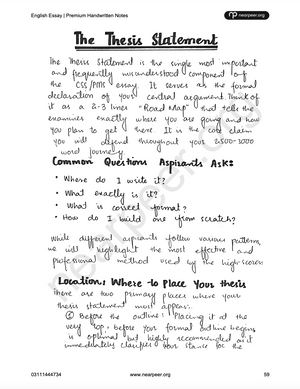 English Essay | Premium Handwritten Notes
nearpeer.org
The Thesis Statement
The Thesis Statement is the single most important
and frequently misunderstood component of
the CSS/PMS essay. It serves as the formal
declaration of your central argument. Think of
it as a 2-3 lines "Road Map" that tells the
examiner exactly where you are going and how
you plan to get there. It is the core claim
you will defend throughout your 2500-3000
word journey
Common Questions Aspirants Ask:
• Where do I write it?
• What exactly is it?
• What is correct format?
• How do I build one from scratch?
While different aspirants follow various patterns,
we will highlight the most effective and
professional method used by the high-scorers
Location: Where to Place Your thesis
There are two primary places where your
thesis statement must appear:
Before the outline: Placing it at the
very top, before your formal outline begins
is optimal but highly recommended as it
immediately clarifies your stance for the
03111444734
www.nearpeer.org
59